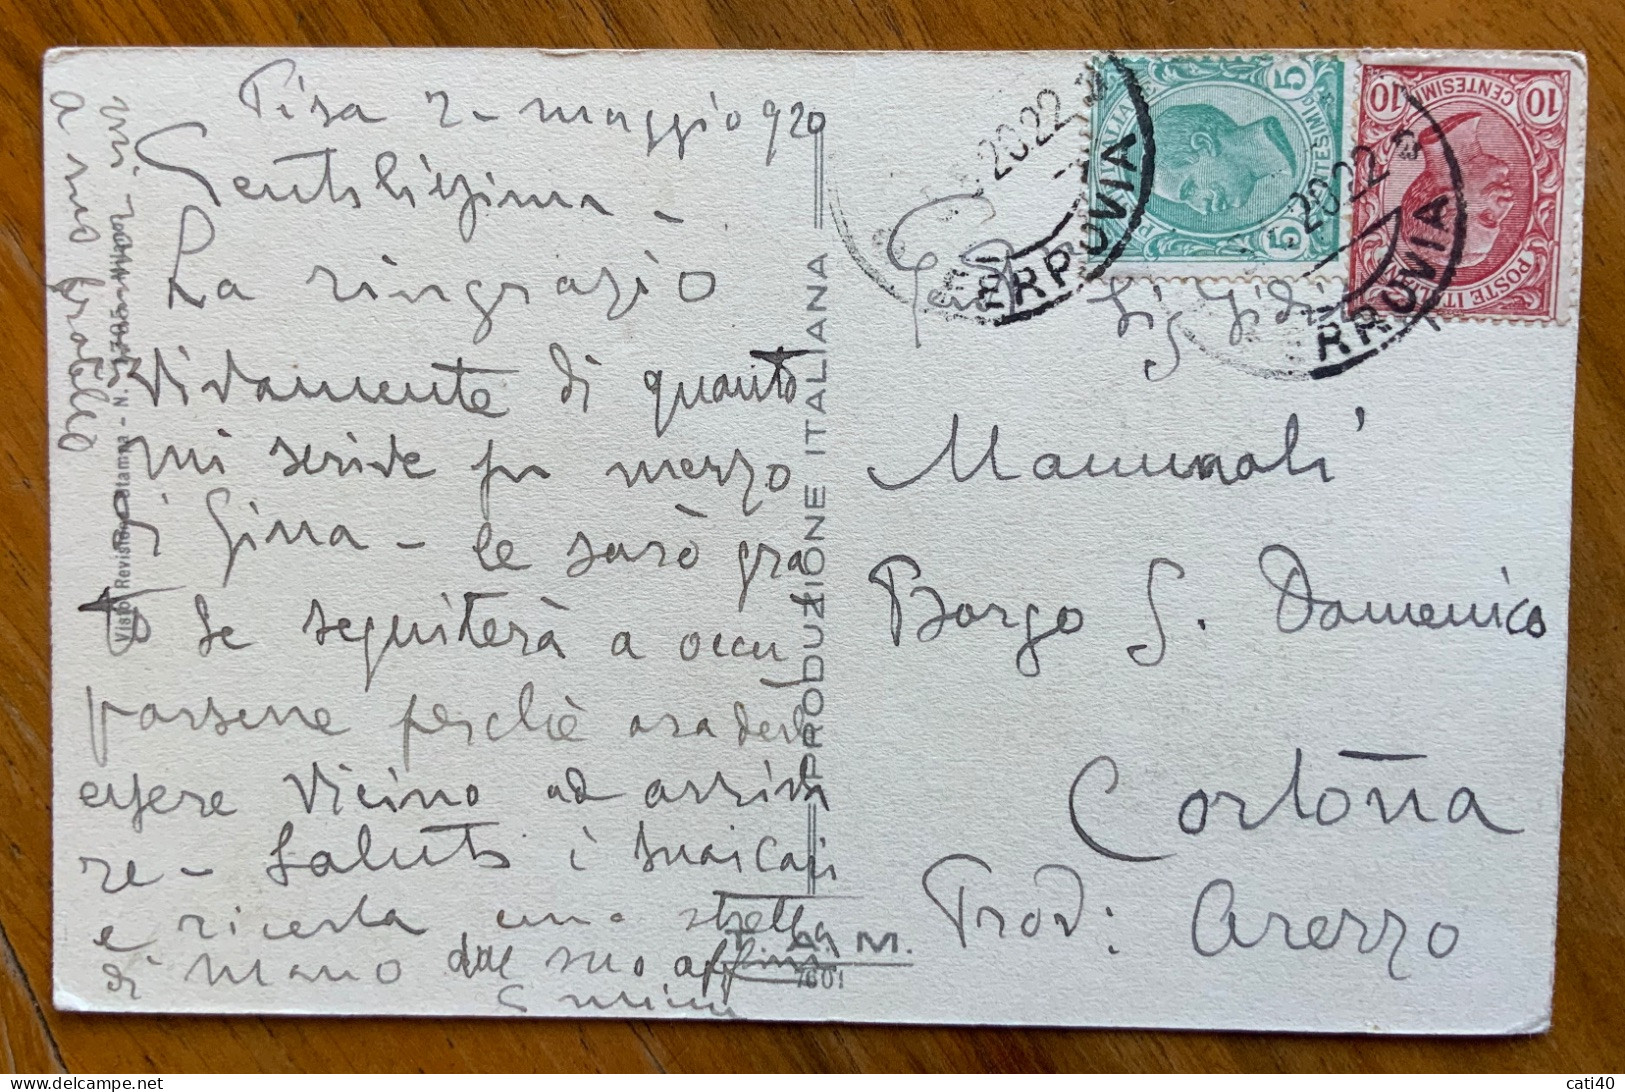 Pisa 2 - maggio 920
Gentilissima -
La ringrazio
vivamente di quanto
mi scrive per mezzo
di Gina - le sarò gra
to se seguiterà a occu
parsene perchè ora deve
essere vicino ad arriva
re - Saluti i suoi cari
e riceva una stretta
di mano dal suo aff
a suo fratello
PRODUZIONE ITALIANA
Visto Revisione Stampa - N.
A. M.
7601
20 22
FERROVIA
20 22
FERROVIA
5 5
CENTESIMI
POSTE ITALIANE
10 10
CENTESIMI
POSTE ITALIANE
Sig
Borgo S. Domenico
Cortona
Prov: Arezzo
cati40